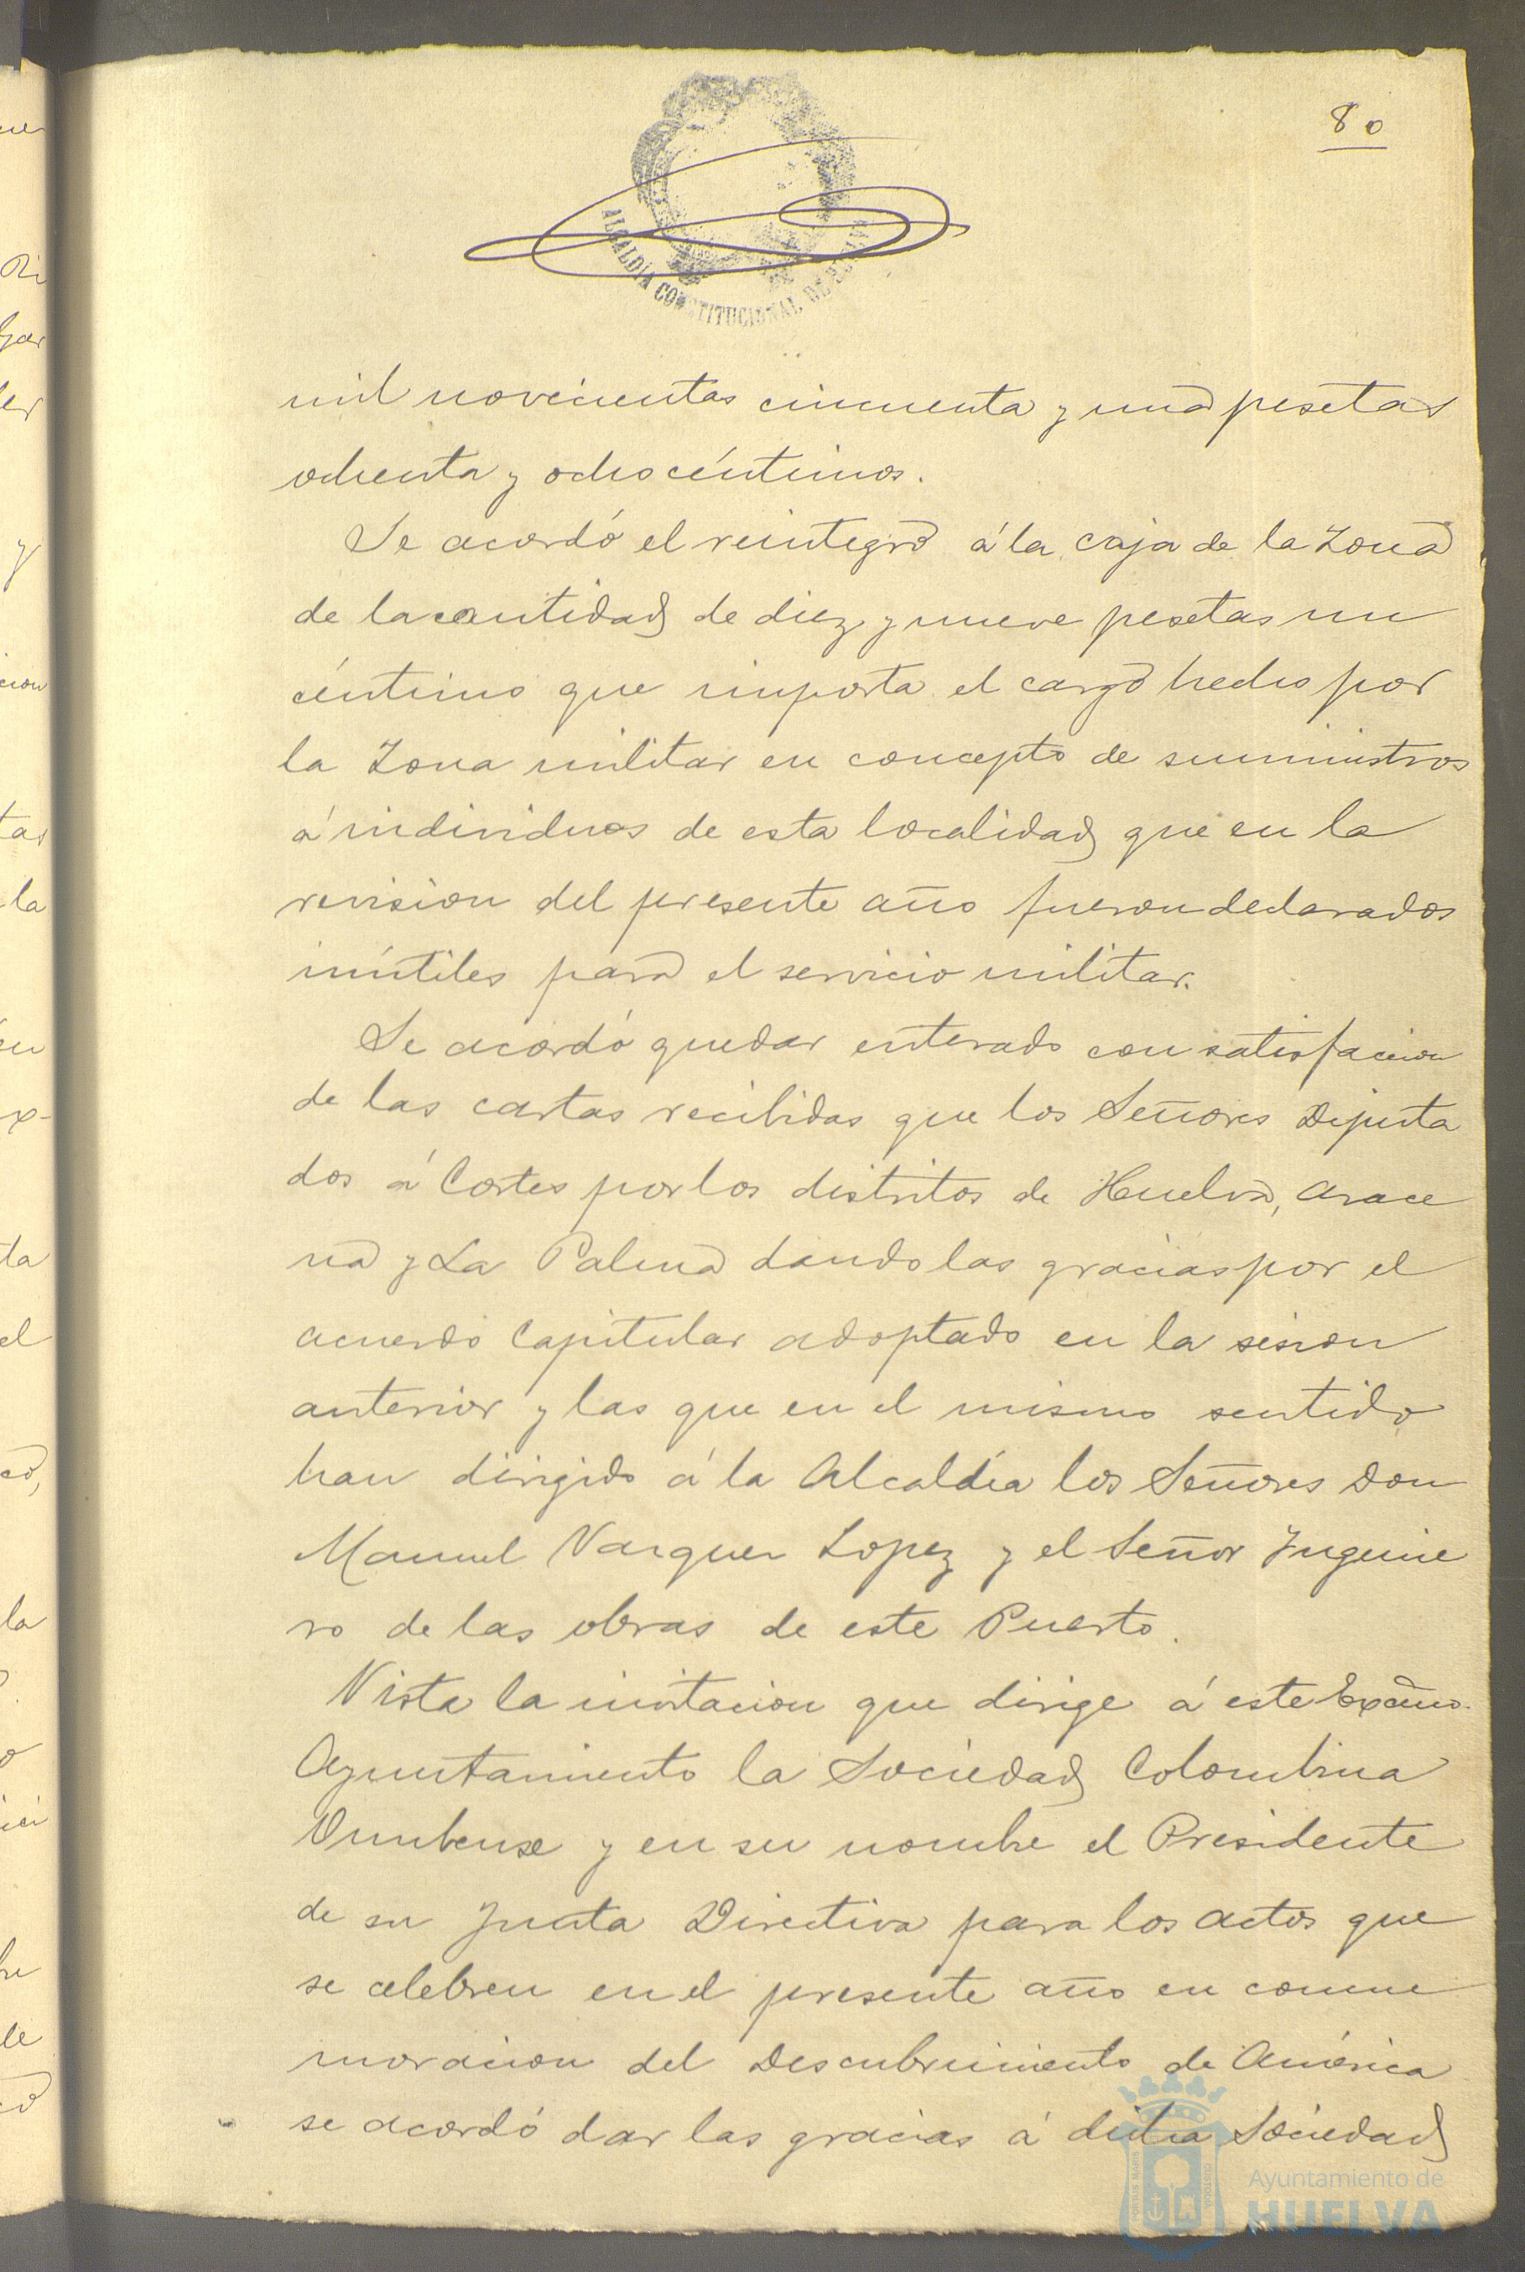 80
ALCALDÍA CONSTITUCIONAL DE HUELVA
mil novecientas cincuenta y una pesetas
ochenta y ocho céntimos.
Se acordó el reintegro á la caja de la Zona
de la cantidad de diez y nueve pesetas un
céntimo que importa el cargo hecho por
la Zona militar en concepto de suministros
á individuos de esta localidad que en la
revision del presente año fueron declarados
inútiles para el servicio militar.
Se acordó quedar enterado con satisfaccion
de las cartas recibidas que los Señores Diputa
dos á Cortes por los distritos de Huelva, Arace
na y La Palma dando las gracias por el
acuerdo Capitular adoptado en la sesion
anterior y las que en el mismo sentido
han dirigido á la Alcaldía los Señores Don
Manuel Vazquez Lopez y el Señor Ingenie
ro de las obras de este Puerto.
Vista la invitacion que dirige á este Excmo.
Ayuntamiento la Sociedad Colombina
Onubense y en su nombre el Presidente
de su Junta Directiva para los actos que
se celebren en el presente año en conme
moracion del Descubrimiento de América
se acordó dar las gracias á dicha Sociedad
Ayuntamiento de
HUELVA